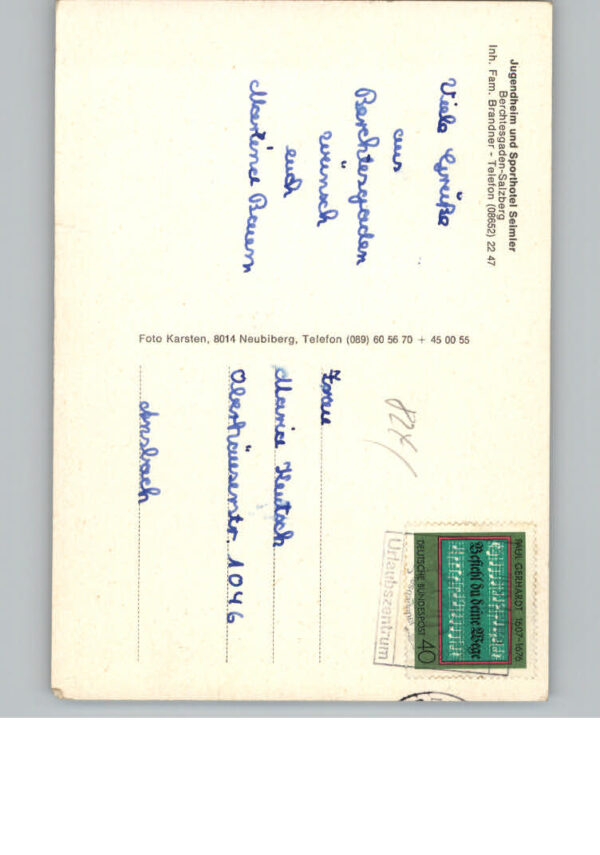 Jugendheim und Sporthotel Seimler
Berchtesgaden-Salzberg
Inh. Fam. Brandner - Telefon (08652) 22 47
Viele Grüße
aus
Berchtesgaden
wünsch
euch
Foto Karsten, 8014 Neubiberg, Telefon (089) 60 56 70 + 45 00 55
824/
PAUL GERHARDT 1607-1676
Befiehl du deine Wege
DEUTSCHE BUNDESPOST 40
Urlaubszentrum
Frau
Maria
1046
Ansbach